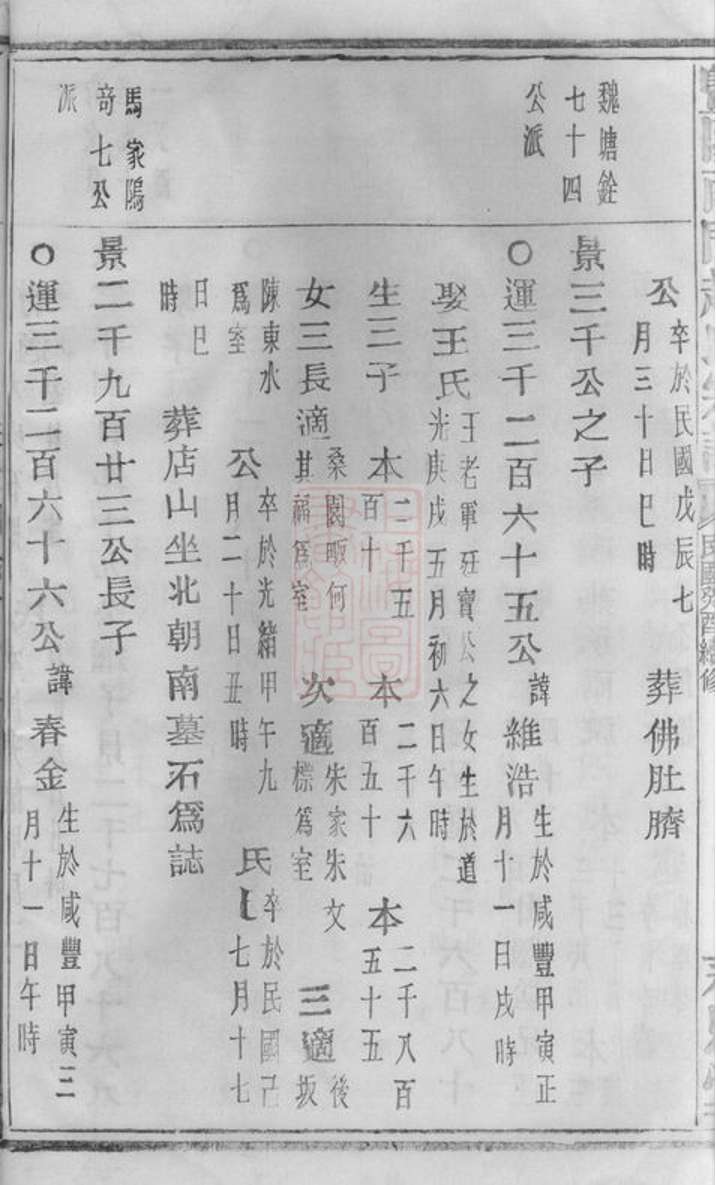 民國癸酉續修
公 卒於民國戊辰七月三十日巳時 葬佛肚臍
魏塘銓七十四公派
景三千公之子
○運三千二百六十五公 諱維浩 生於咸豐甲寅正月十一日戌時
娶王氏 王老軍廷寶公之女生於道光庚戌五月初六日午時
生三子 本二千五百十 本二千六百五十 本二千八百五十五
女三長適 桑園畈何其福爲室 次適 朱家朱文標爲室 三適 後坂陳東水爲室
公 卒於光緒甲午九月二十日丑時 氏 卒於民國己七月十七日巳時
葬店山坐北朝南墓石爲誌
馬家隝奇七公派
景二千九百廿三公長子
○運三千二百六十六公 諱春金 生於咸豐甲寅三月十一日午時